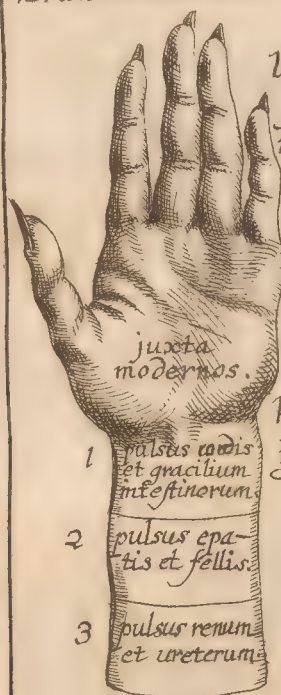 juxta
modernos.
1 pulsus cordis
et gracilium
intestinorum.
2 pulsus epa-
tis et fellis.
3 pulsus renum
et ureterum.